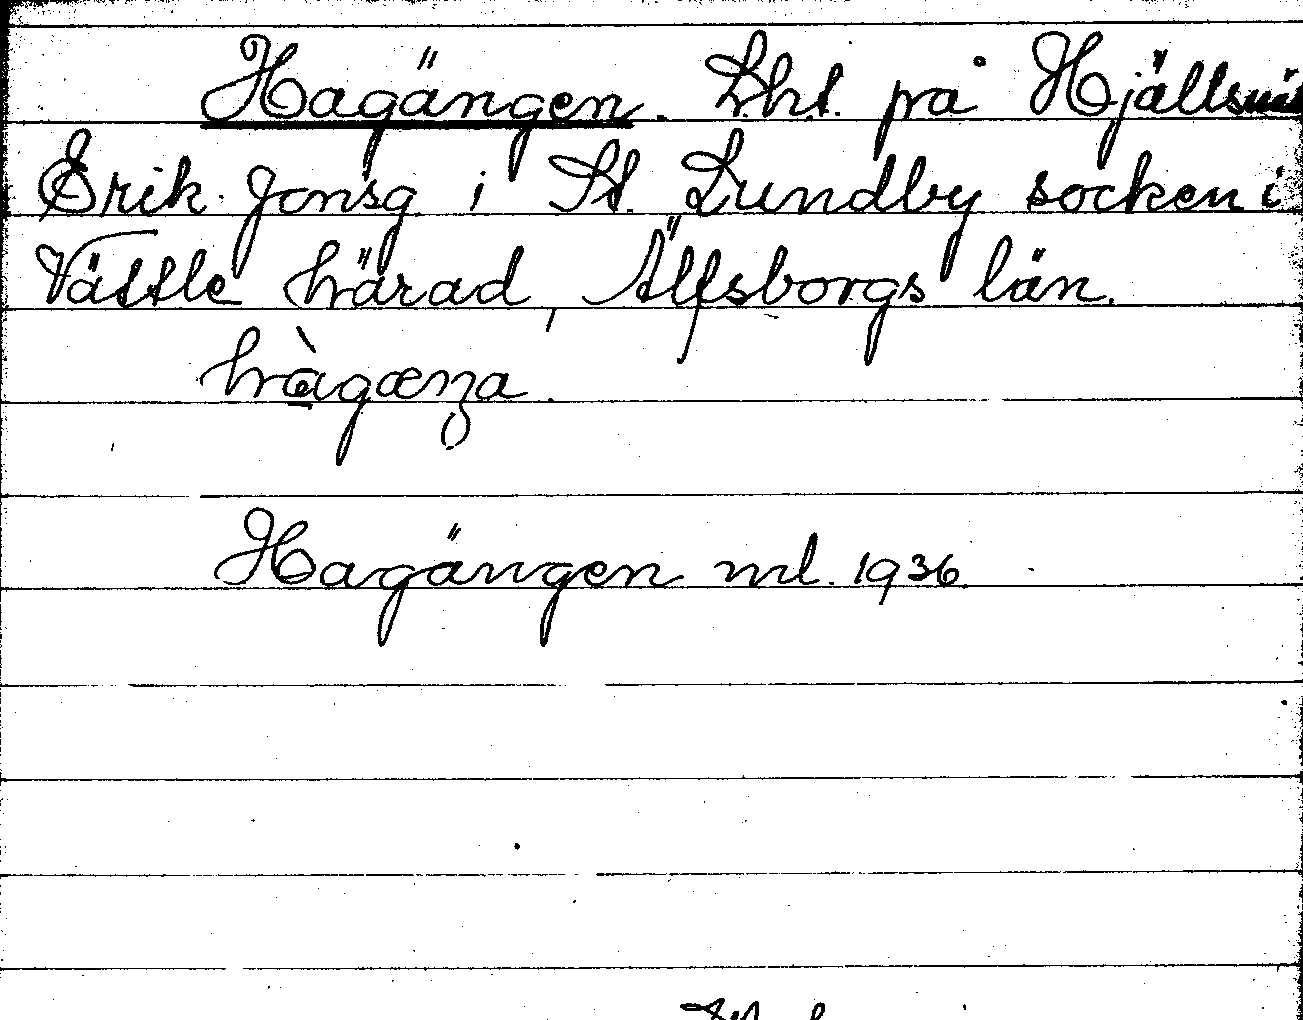 Hagängen. Lht. på Hjällsnäs
Erik Jonsg. i St. Lundby socken i
Vättle härad, Älfsborgs län.
Hagängen ml. 1936.